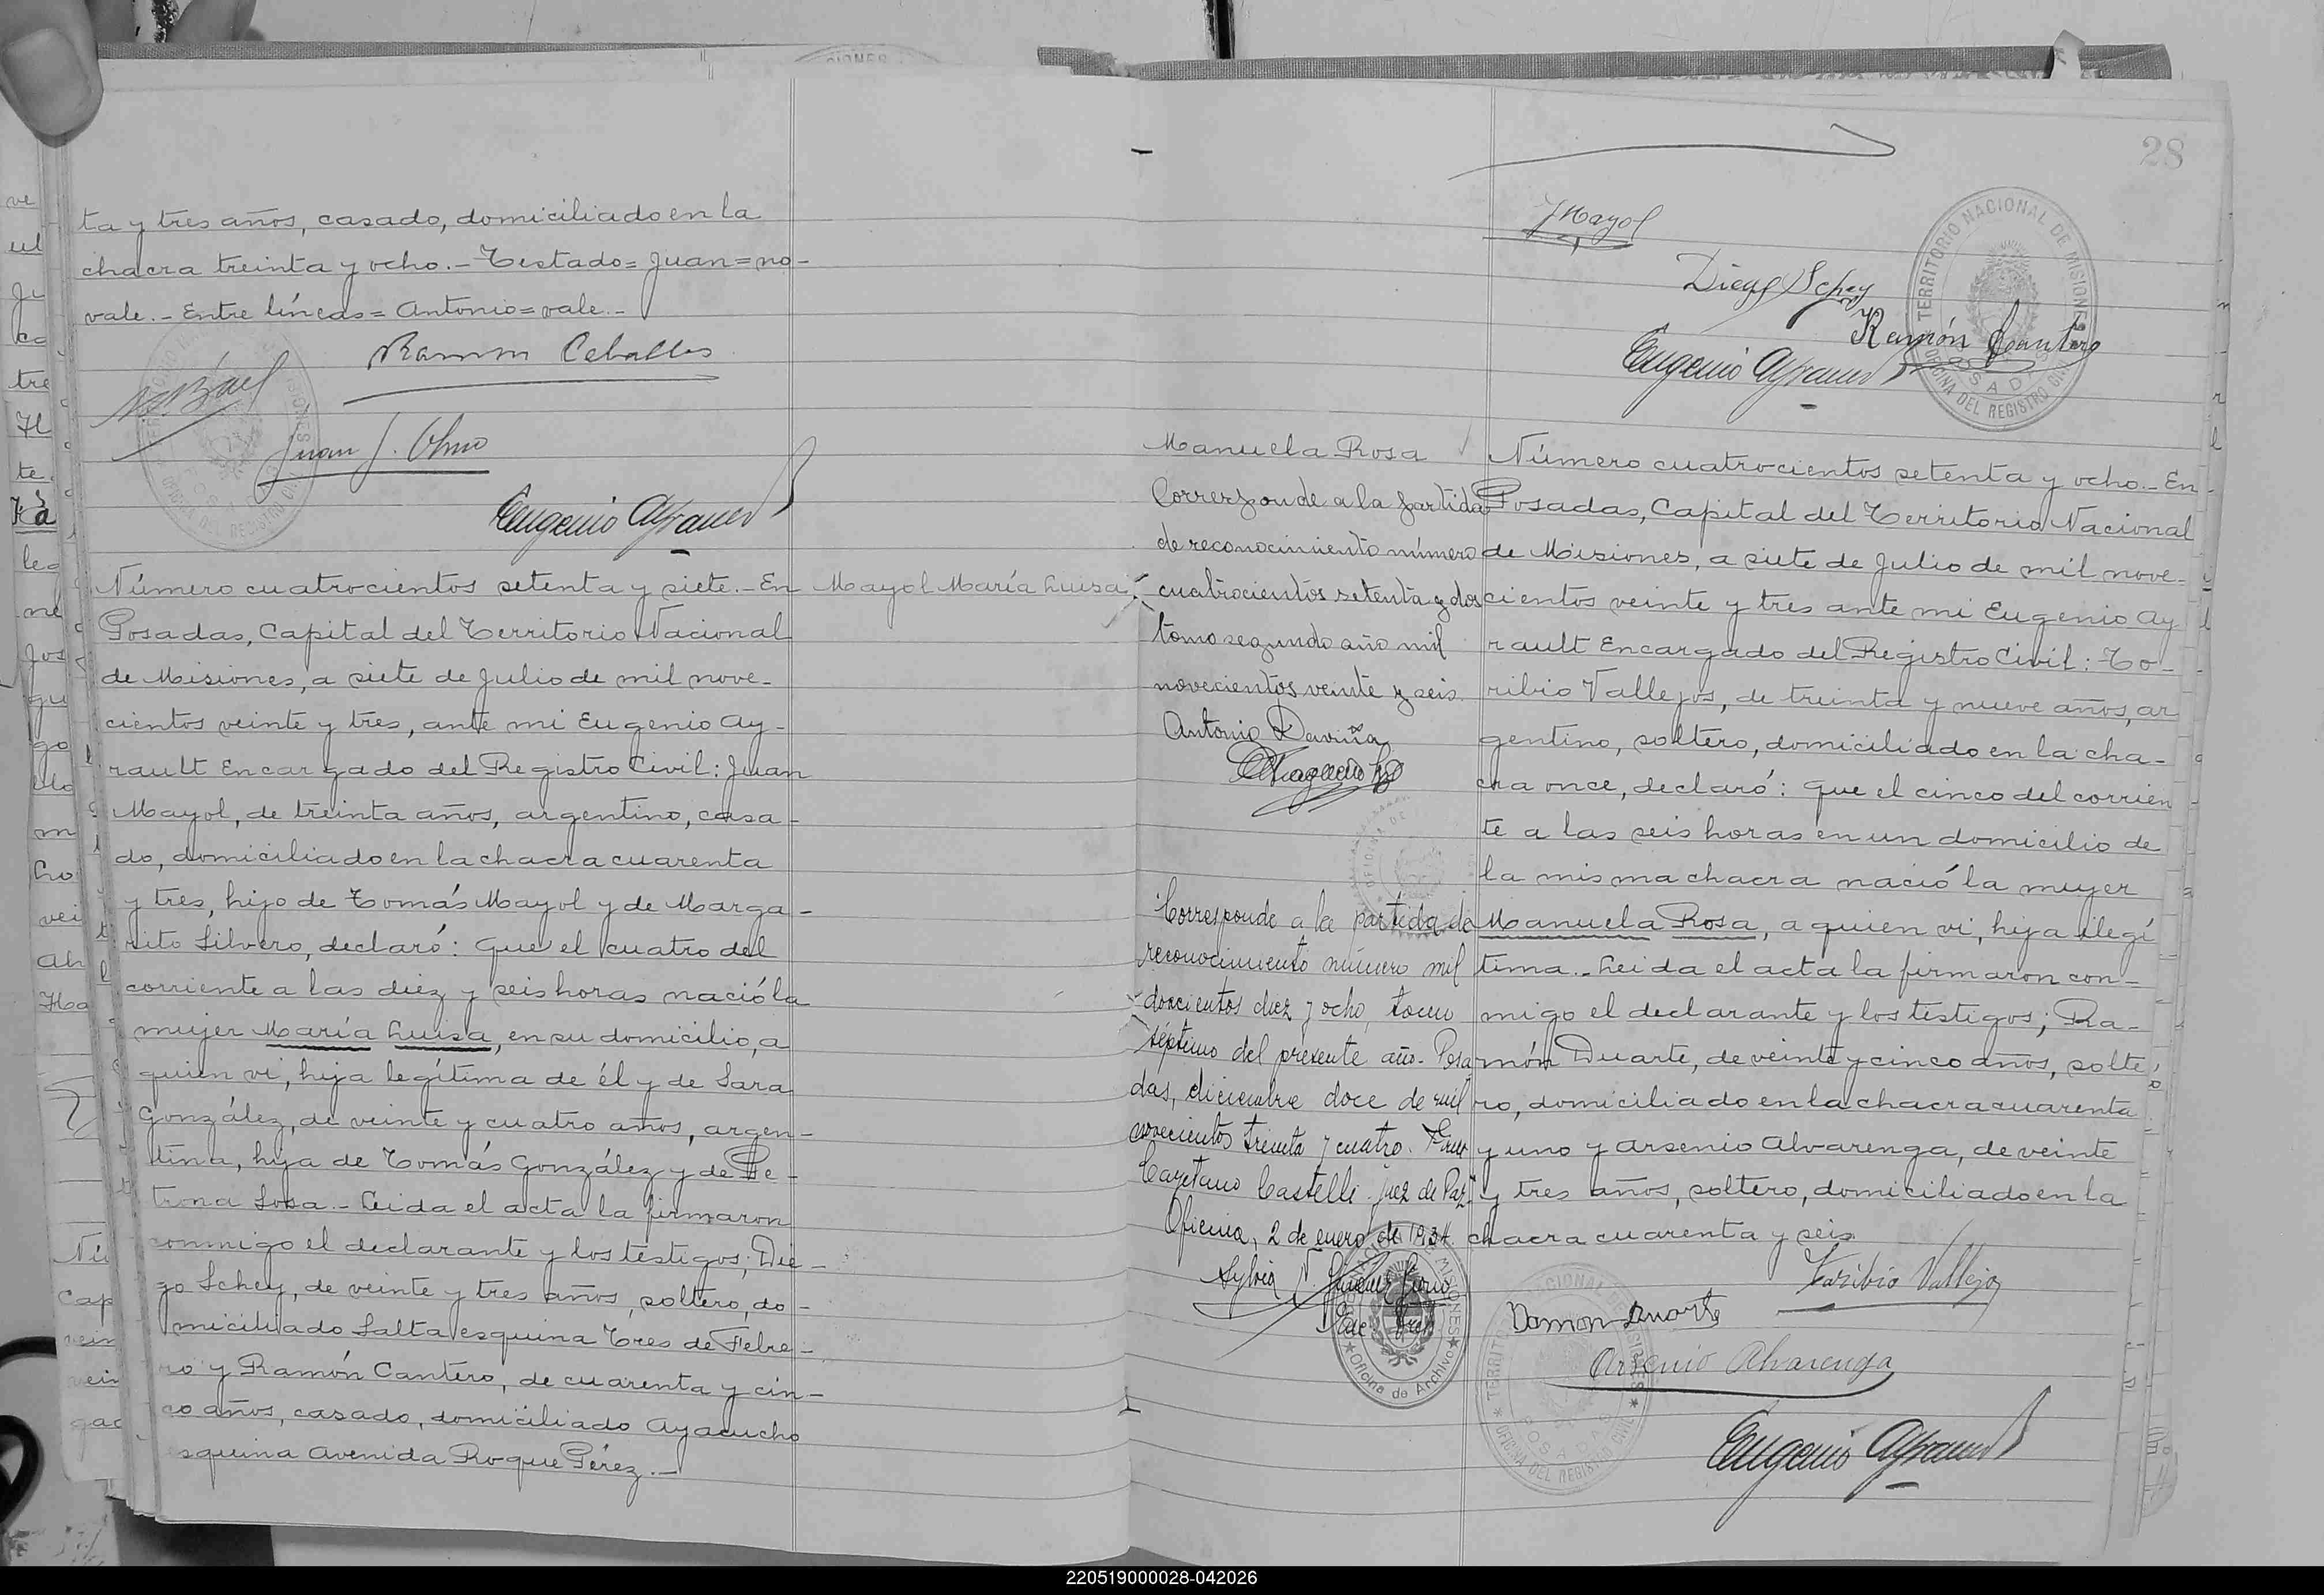 ta y tres años, casado, domiciliado en la
chacra treinta y ocho.- Testado= Juan= no-
vale.- Entre líneas= Antonio= vale.-
Ramon Ceballos
Juan J. Olmo
Número cuatrocientos setenta y siete.- En
Posadas, Capital del Territorio Nacional
de Misiones, a siete de Julio de mil nove-
cientos veinte y tres, ante mi Eugenio Ay-
rault Encargado del Registro Civil: Juan
Mayol, de treinta años, argentino, casa-
do, domiciliado en la chacra cuarenta
y tres, hijo de Tomás Mayol y de Marga-
rita Silvero, declaró: Que el cuatro del
corriente a las diez y seis horas nació la
mujer María Luisa, en su domicilio, a
quien vi, hija legítima de él y de Sara
González, de veinte y cuatro años, argen-
tina, hija de Tomás González y de Pe-
trona Sosa.- Leida el acta la firmaron
conmigo el declarante y los testigos; Die-
go Schey, de veinte y tres años, soltero, do-
miciliado Salta esquina Tres de Febre-
ro y Ramón Cantero, de cuarenta y cin-
co años, casado, domiciliado Ayacucho
esquina Avenida Roque Pérez.-
Mayol María Luisa
28
J Mayol
Diego Schey
Ramón Cantero
TERRITORIO NACIONAL DE MISIONES
OFICINA DEL REGISTRO CIVIL
POSADAS
Manuela Rosa
Corresponde a la partida
de reconocimiento número
cuatrocientos setenta y dos
tomo segundo año mil
novecientos veinte y seis.
Antonio
Corresponde a la partida de
reconocimiento número mil
doscientos diez y ocho, tomo
séptimo del presente año.- Posa
das, diciembre doce de mil
novecientos treinta y cuatro.
Cayetano Castelli. Juez de Paz
Oficina, 2 de enero de 1934.
Oficina de Archivo
Número cuatrocientos setenta y ocho.- En
Posadas, Capital del Territorio Nacional
de Misiones, a siete de Julio de mil nove-
cientos veinte y tres ante mi Eugenio Ay
rault Encargado del Registro Civil: To-
ribio Vallejos, de treinta y nueve años, ar
gentino, soltero, domiciliado en la cha-
cra once, declaró: Que el cinco del corrien
te a las seis horas en un domicilio de
la misma chacra nació la mujer
Manuela Rosa, a quien vi, hija ilegí
tima.- Leida el acta la firmaron con-
migo el declarante y los testigos; Ra-
món Duarte, de veinte y cinco años, solte
ro, domiciliado en la chacra cuarenta
y uno y Arsenio Alvarenga, de veinte
y tres años, soltero, domiciliado en la
chacra cuarenta y seis.
Toribio Vallejos
Ramon Duarte
Arsenio Alvarenga
220519000028-042026